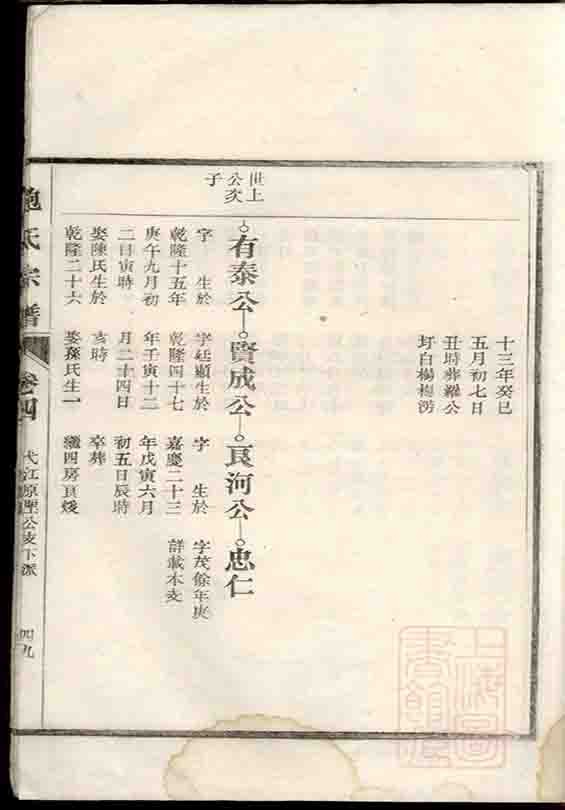 十三年癸巳
五月初七日
丑時葬羅公
圩白楊
世上
公次
子
有泰公
賢成公
良河公
忠仁
字 生於
乾隆十五年
庚午九月初
二日寅時
娶陳氏生於
乾隆二十六
字廷顯生於
乾隆四十七
年壬寅十二
月二十四日
亥時
娶孫氏生一
字 生於
嘉慶二十三
年戊寅六月
初五日辰時
卒葬
繼四房良煖
字茂餘年庚
詳載本支
氏宗譜
卷四
弋江原聖公支下派
四九
上海圖書館藏